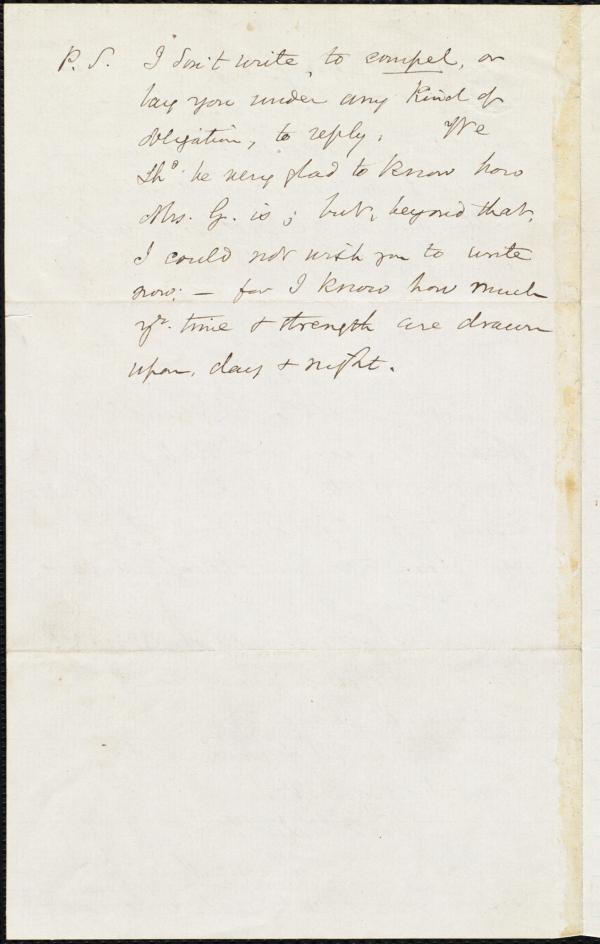 P.S. I don't write, to compel, or
lay you under any kind of
obligation, to reply. We
shd be very glad to know how
Mrs. G. is; but, beyond that,
I could not wish you to write
now; — for I know how much
yr. time & strength are drawn
upon, day & night.